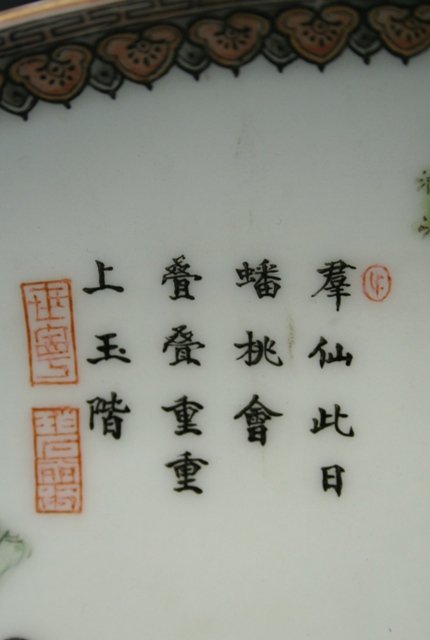 羣仙此日
蟠桃會
叠叠重重
上玉階